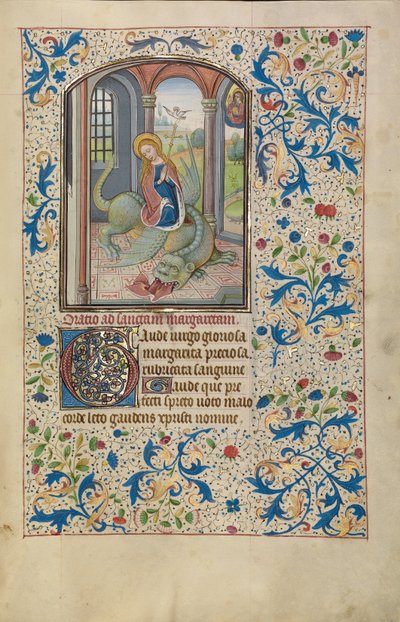 Oratio ad sanctam margaretam.
Gaude virgo gloriosa
margarita preciosa
rubricata sanguine
Gaude que pre
fecti spreto voto malo
corde leto gaudens xpristi nomine,